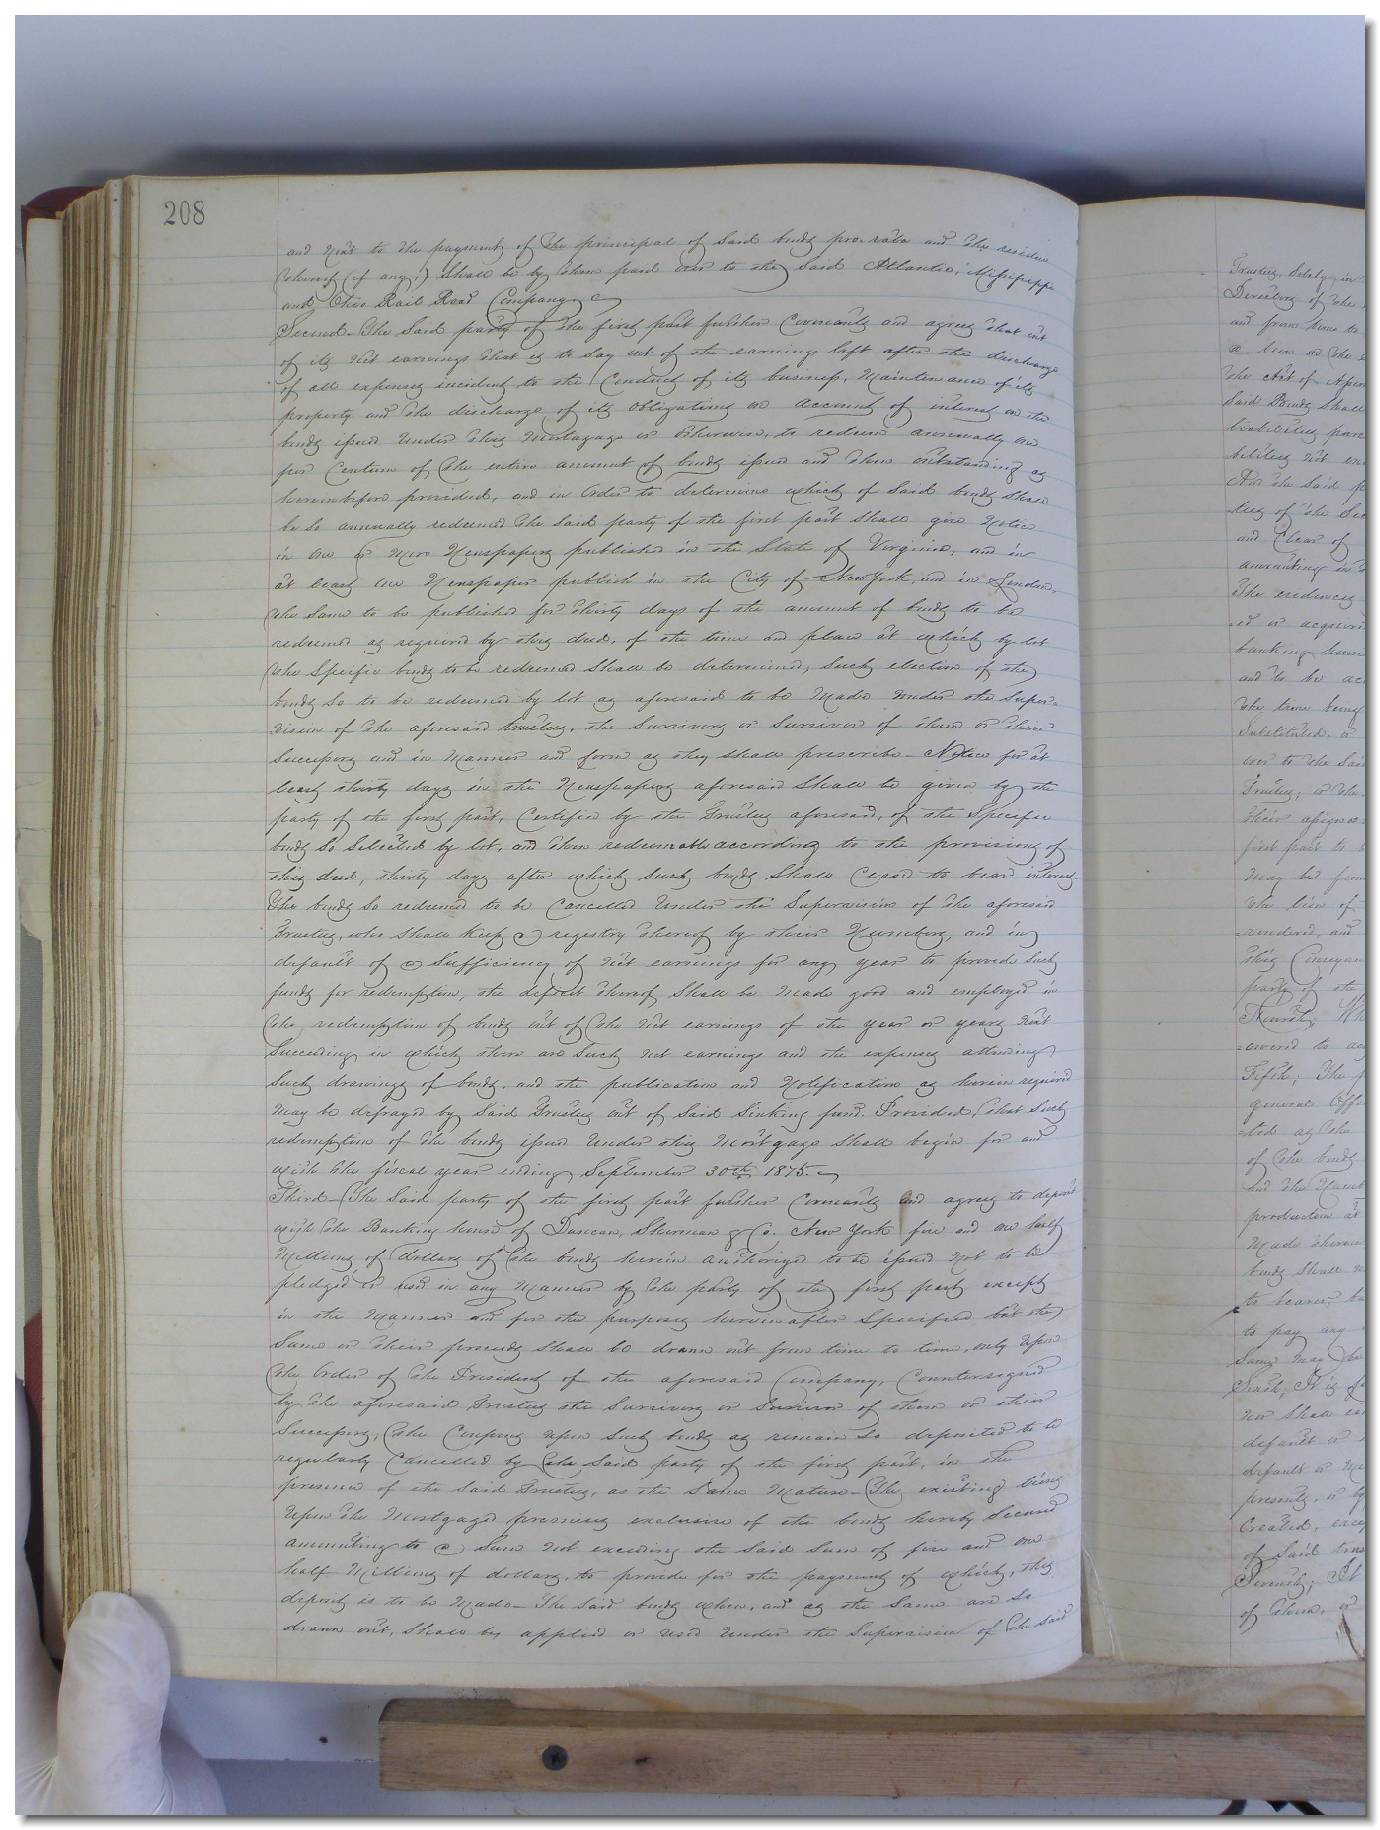 208
and next to the payment of the principal of said bonds pro. rata and the residue
thereof (if any;) shall be by them paid over to the said Atlantic, Mississippi
and Ohio Rail Road Company
Second. The said party of the first part further covenants and agrees that out
of its net earnings that is to say out of the earnings left after the discharge
of all expenses incident to the conduct of its business, maintenance of its
property and the discharge of its obligations on account of interest on the
bonds issued under this mortgage or otherwise, to redeem annually one
per centum of the entire amount of bonds issued and then outstanding as
hereinbefore provided, and in order to determine which of said bonds shall
be so annually redeemed the said party of the first part shall give notice
in one or more Newspapers published in the State of Virginia, and in
at least one Newspaper publish in the City of New York, and in London,
the same to be published for thirty days of the amount of bonds to be
redeemed as required by this deed, of the time and place at which by lot
the specific bonds to be redeemed shall be determined, such election of the
bonds so to be redeemed by lot as aforesaid to be made under the super-
vision of the aforesaid trustees, the survivors or survivor of them or their
successors and in manner and form as they shall prescribe - Notice for at
least thirty days in the Newspapers aforesaid shall be given by the
party of the first part, certified by the Trustees aforesaid, of the specific
bonds so selected by lot, and then redeemable according to the provisions of
this deed, thirty days after which such bonds shall cease to bear interest.
The bonds so redeemed to be cancelled under the supervision of the aforesaid
Trustees, who shall keep a registry thereof by their Numbers, and in
default of a sufficiency of net earnings for any year to provide such
funds for redemption, the deficit thereof shall be made good and employed in
the redemption of bonds out of the net earnings of the year or years next
succeeding in which there are such net earnings and the expenses attending
such drawings of bonds, and the publication and notification as herein required
may be defrayed by said Trustees out of said sinking fund. Provided, that such
redemption of the bonds issued under this mortgage shall begin for and
with the fiscal year ending September 30th 1875.
Third - The said party of the first part further covenants and agrees to deposit
with the Banking house of Duncan, Sherman & Co. New York five and one half
millions of dollars of the bonds herein authorized to be issued not to be
pledged or used in any manner by the party of the first part except
in the manner and for the purposes hereinafter specified but the
same or their proceeds shall be drawn out from time to time, only upon
the order of the President of the aforesaid Company, countersigned
by the aforesaid Trustees the survivors or survivor of them or their
successors, the coupons upon such bonds as remain so deposited to be
regularly cancelled by the said party of the first part, in the
presence of the said Trustees, as the same mature - The existing liens
upon the mortgaged premises exclusive of the bonds hereby secured
amounting to a sum not exceeding the said sum of five and one
half millions of dollars, to provide for the payment of which, this
deposit is to be made - The said bonds when, and as the same are so
drawn out, shall be applied or used under the supervision of the said
Trustees, solely, in
Directors of the
and from time to
a lien on the
the Act of
said Bonds shall
liabilities
bilities not
And the said
ters of the
and clear of
amounting in
The evidences
ed or acquired
banking house
and to be
the time being
substituted, or
over to the said
Trustees, or the
their
first part to
may be
the lien of
rendered, and
this Conveyance
party of the
Fourth; Wh
covered to
Fifth; The
general
ted as the
of the bonds
and the
production at
made
bonds shall
to bearer,
to pay any
same may be
Sixth; It is
nor shall
default or
default or
presents, or by
created, exce
of said
Seventh; It
of them, or